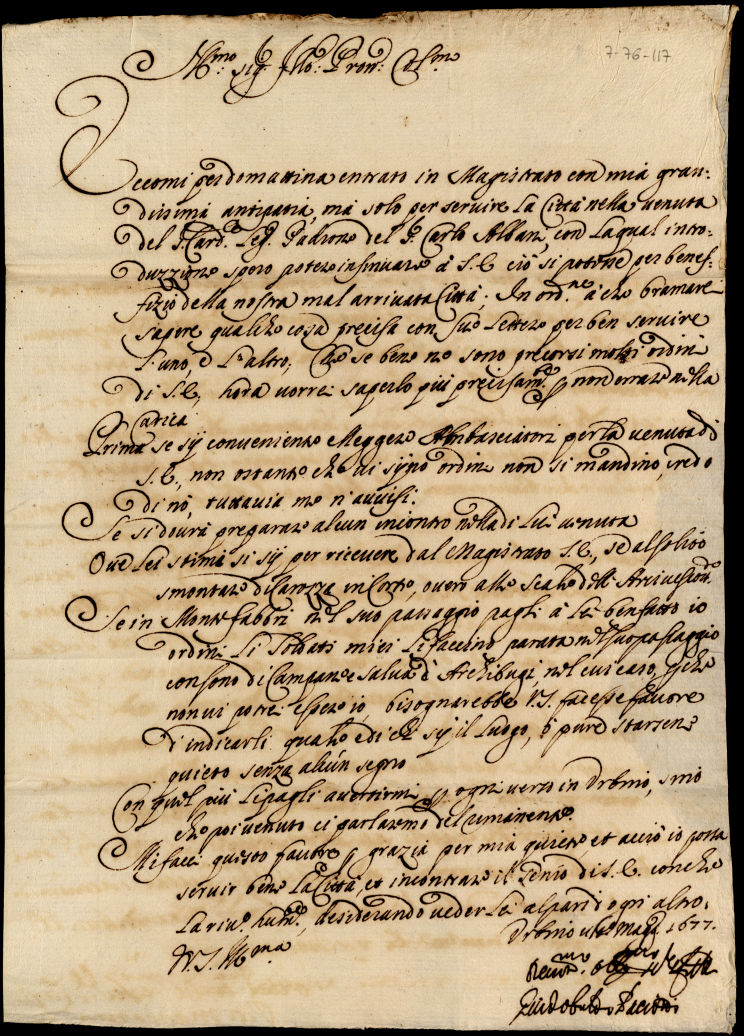 7-76-117
Ill:mo Sig:r Pron: Col:mo
Eccomi per domattina entrato in Magistrato con mia gran:
dissima antipatia, ma solo per servire la Città nella venuta
del S. Card.e Leg. Padrone del S. Carlo Albani, con la qual intro:
duzzione spero potere insinuare à S. E. ciò si potrà per bene:
fizio della nostra mal arrivata Città; In ord.ne à che bramarei
sapere qualche cosa precisa con sue lettere per ben servire
l'uno, e l'altro; Che se bene ne sono precorsi molti ordini
di S. E., hora vorrei saperlo più precisam.te p non errare nella
Carica
Prima se sij conveniente eleggere Ambasciatori per la venuta di
S. E., non ostante che vi sijno ordini non si mandino, credo
di nò, tuttavia me n'avvisi.
Se si dovrà preparare alcun incontro nella di Lui venuta
Ove Lei stima si sij per ricevere dal Magistrato S. E., se al solito
smontare di Carozza in Corte, overo alle Scale dell'Arcivescov.do
Se in Monte fabbri nel suo passaggio pagli à Lei ben fatto io
ordini li Soldati miei li faccino parata nel suo passaggio
con sono di Campane e salva d'Archibugi, nel cui caso, giache
non vi potrei essere io, bisognarebbe V. S. facesse favore
d'indicarli quale ed ch sij il luogo, ò pure starsene
quieto senza alcun segno
Con quel più li pagli avertirmi p ogni verso in Urbino, sino
che poi venuto ci parlaremo del rimanente.
Mi facci questo favore p grazia per mia quiete et acciò io possa
servir bene la Città, et incontrare il Genio di S. E. con che
la riv.o hum.e, desiderando veder Lei al pari d'ogni altro.
Urbino ult.o Mag.o 1677.
V. S. Ill:ma
Guidobaldo